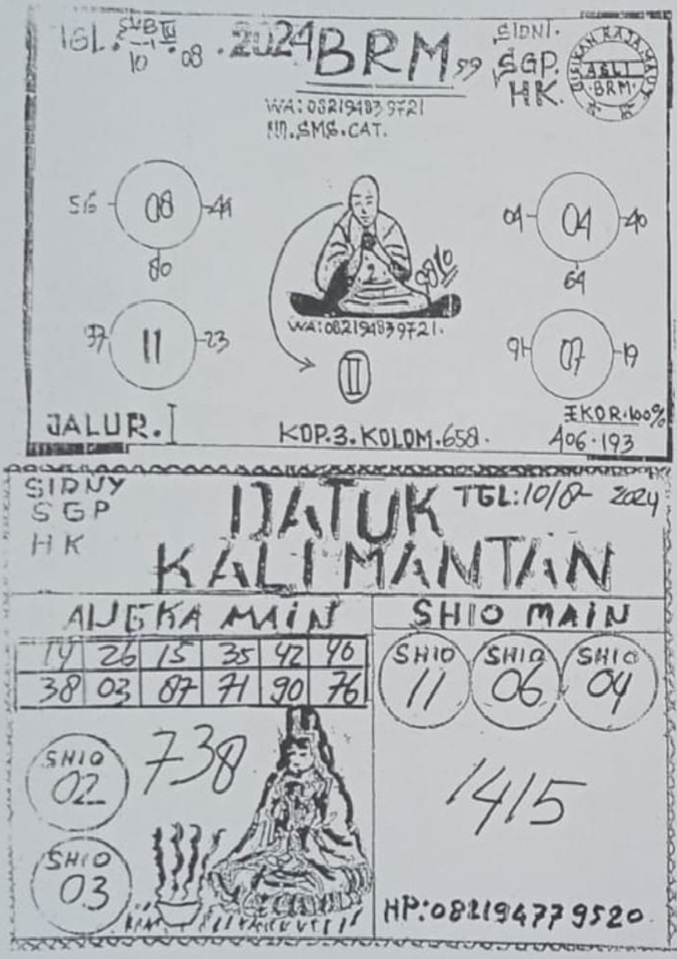 TGL. SUB III .2024 BRM 99 SIDNI.
10 08 SGP.
HK.
ASLI
BRM
WA:082194839721
M.SMS.CAT.
08
80
04
04
40
64
0810
WA:082194839721.
11
23
II
91
07
19
JALUR.I
KOP.3.KOLOM.658.
EKOR.100%
406.193
SIDNY
SGP
HK
DATUK
KALIMANTAN
TGL:10/8- 2024
ANGKA MAIN
SHIO MAIN
14 26 15 35 42 46
38 03 87 71 90 76
SHIO 11
SHIO 06
SHIO 04
SHIO 02
738
1415
SHIO 03
HP:082194779520